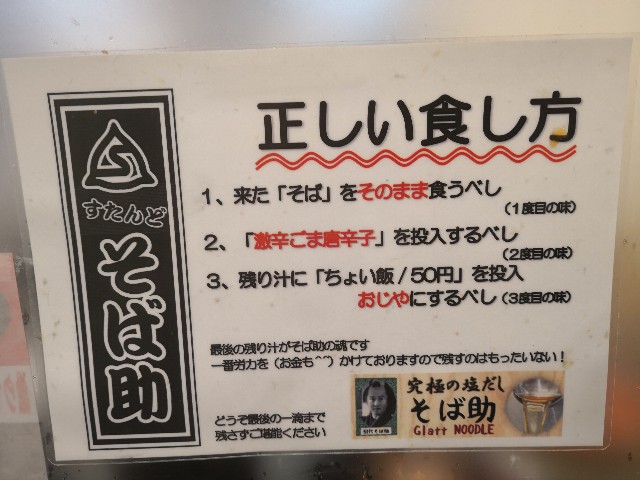 すたんど
そば助
正しい食し方
1、来た「そば」をそのまま食うべし
(1度目の味)
2、「激辛ごま唐辛子」を投入するべし
(2度目の味)
3、残り汁に「ちょい飯/50円」を投入
おじやにするべし(3度目の味)
最後の残り汁がそば助の魂です
一番労力を(お金も^^)かけておりますので残すのはもったいない!
どうぞ最後の一滴まで
残さずご堪能ください
究極の塩だし
そば助
Glatt NOODLE
初代そば助